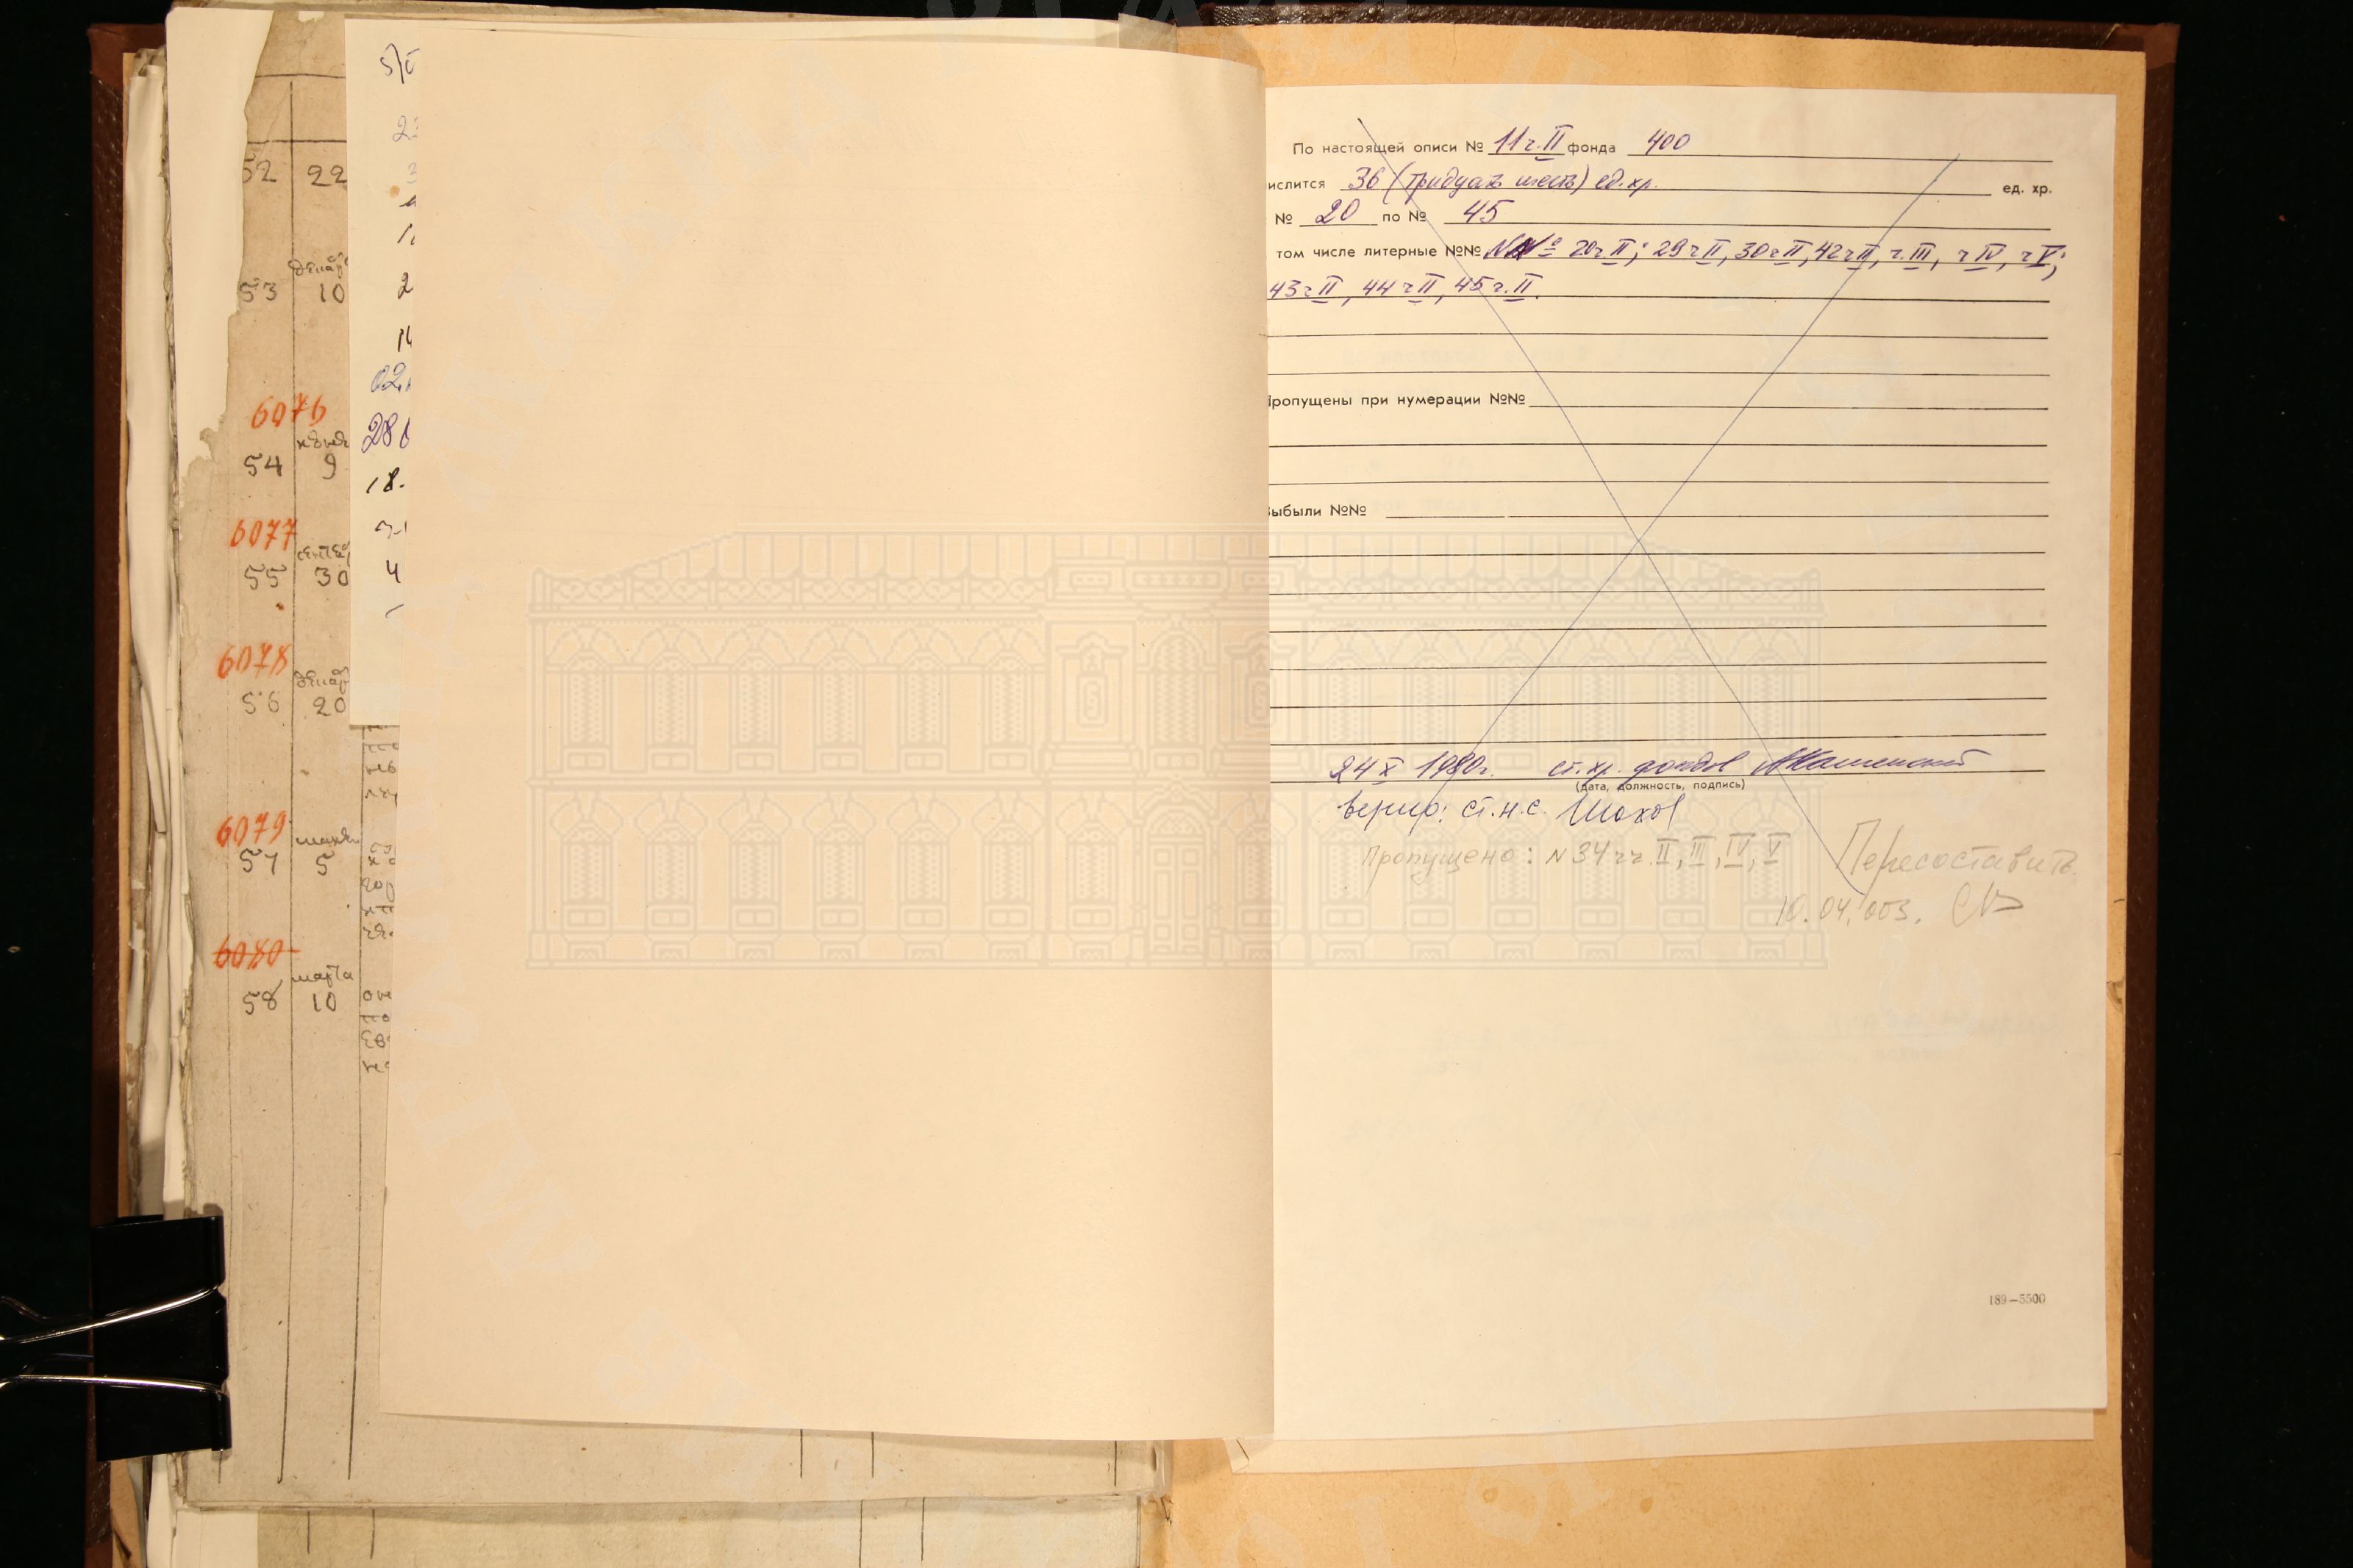 52 22
53 10
6076
54 9
6077
55 30
6078
56 20
6079
57 5
6080
марта
58 10
2
18.
4
По настоящей описи № 11 ч. II фонда 400
ислится 36 (тридцать шесть) ед. хр. ед. хр.
№ 20 по № 45
том числе литерные №№ №№ 20 ч II; 29 ч II, 30 ч II, 42 ч II, ч. III, ч IV, ч V;
43 ч II, 44 ч II, 45 ч. II.
Пропущены при нумерации №№
Выбыли №№
24 X 1980 г. ст. хр. фондов
(дата, должность, подпись)
верно: ст. н. с. Шохов
Пропущено: N 34 чч. II, III, IV, V
Пересоставить.
10.04.003.
189—5500